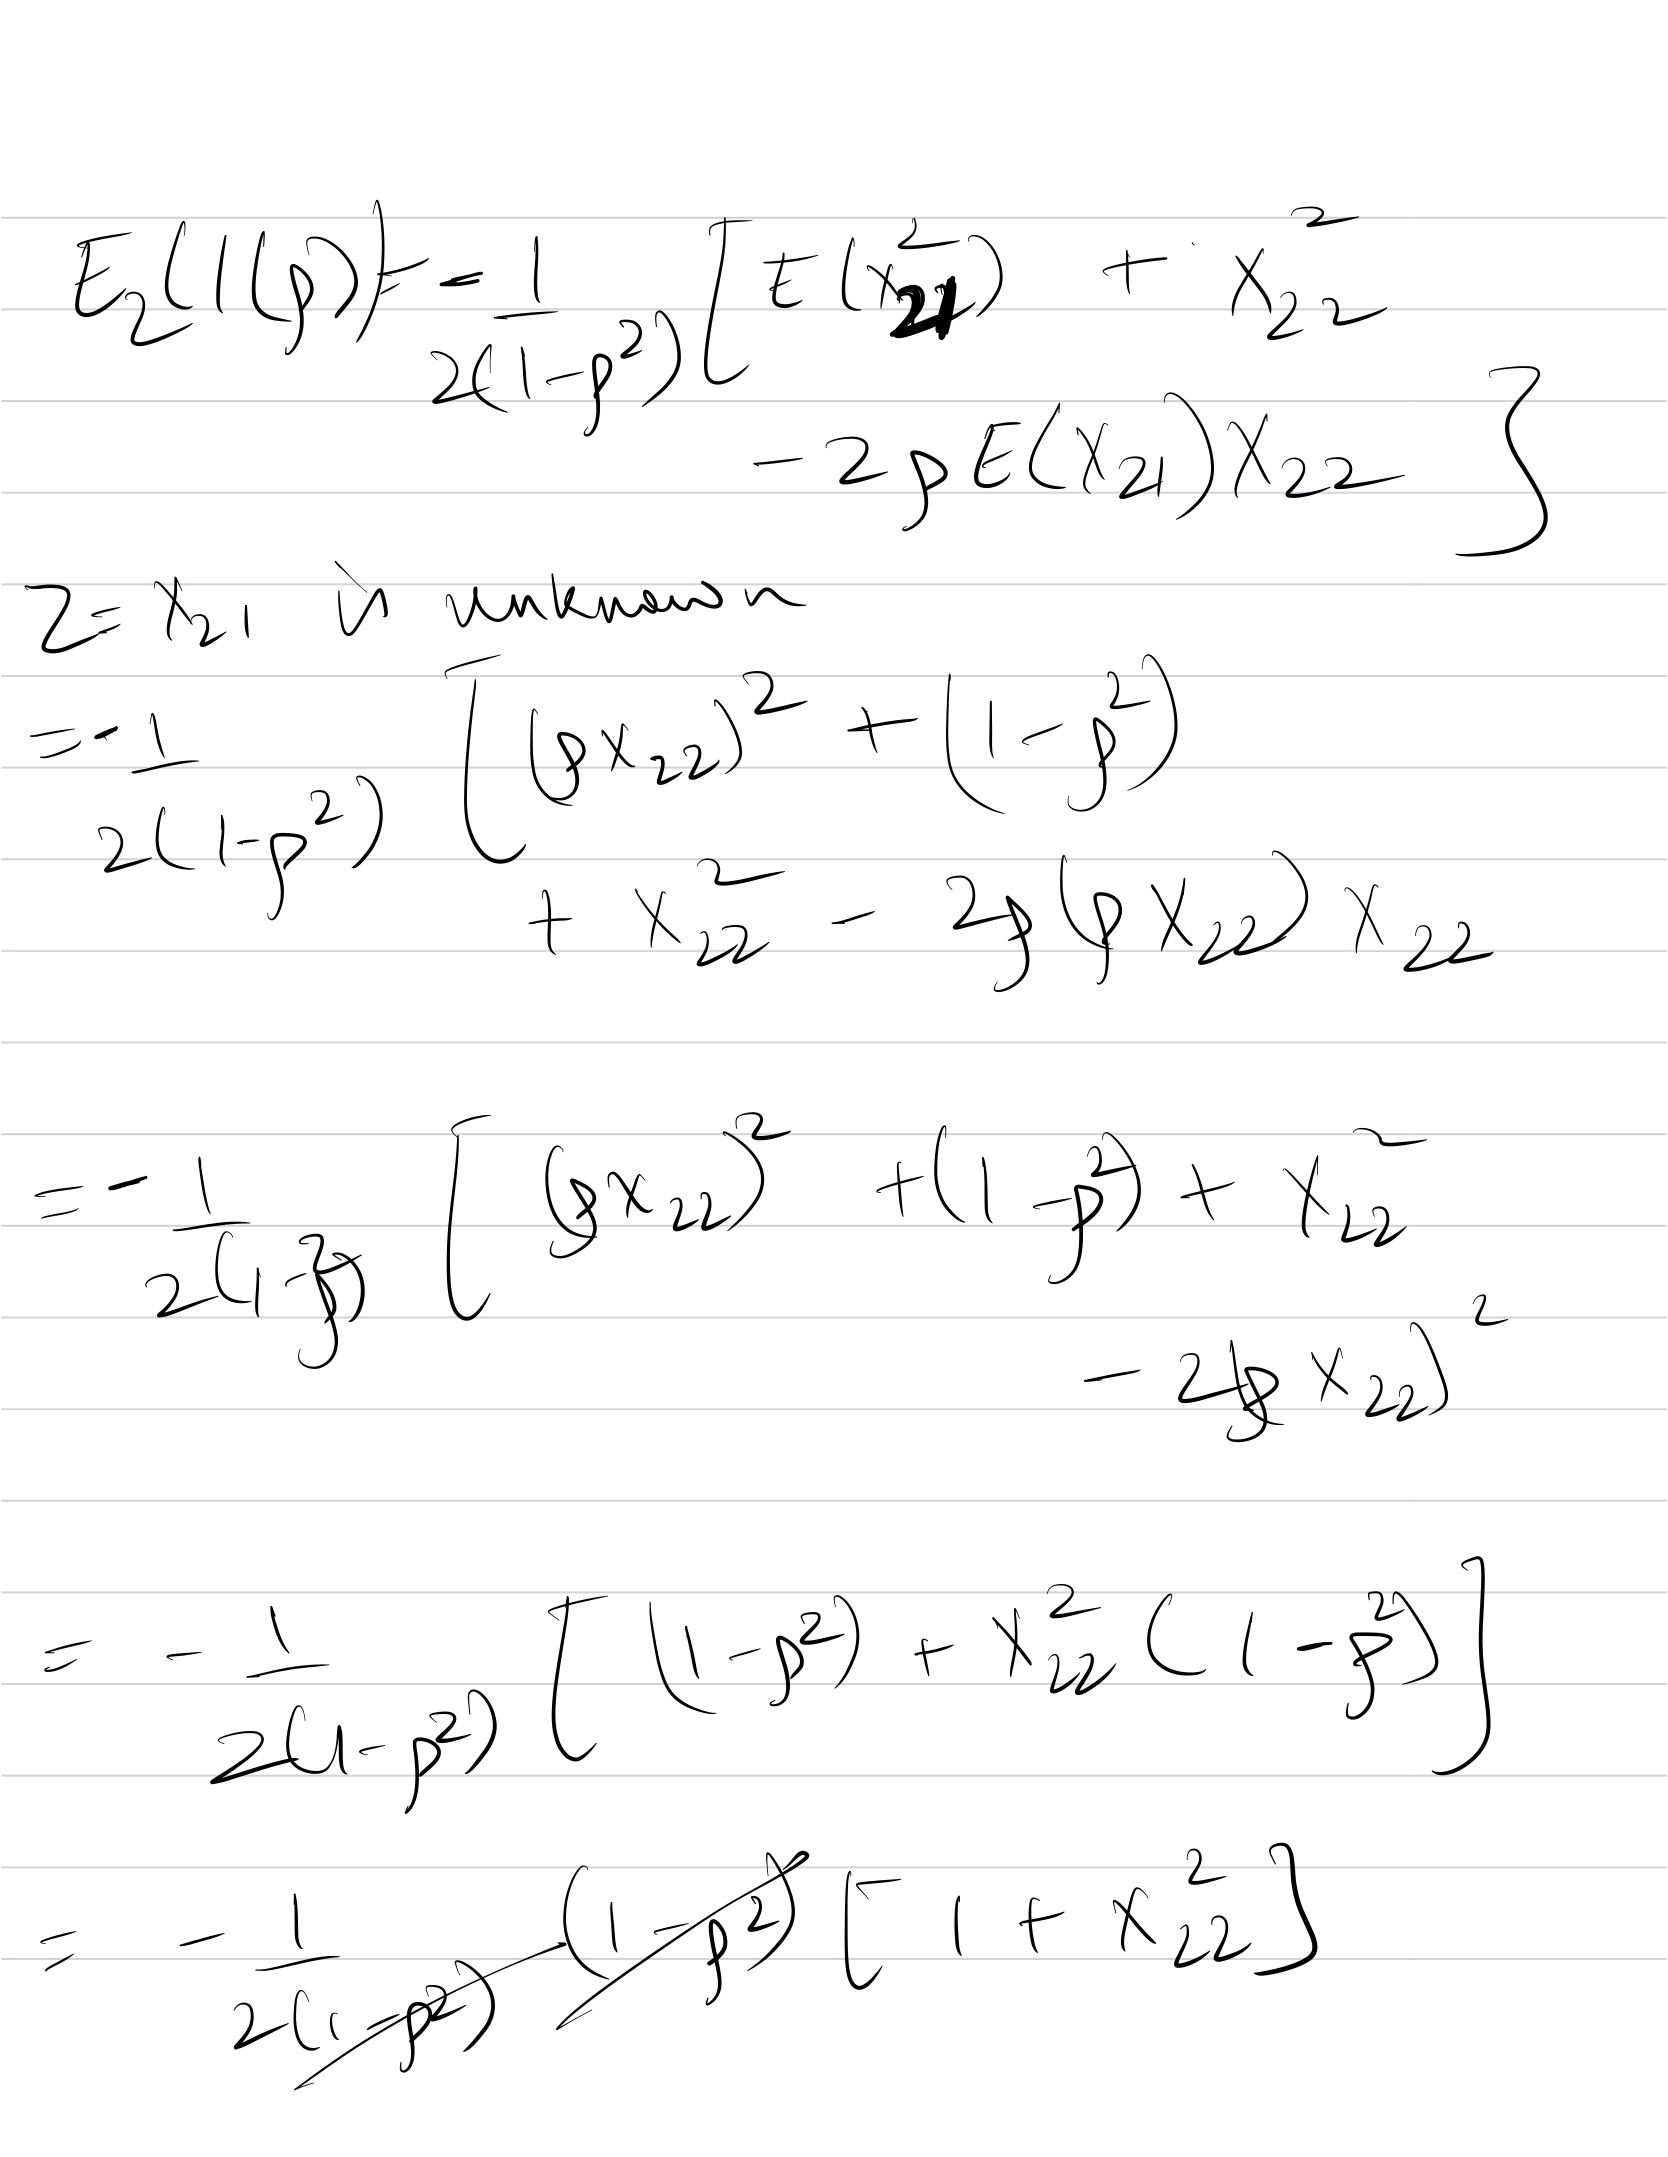 E₂(l(ρ)) = - 1/2(1-ρ²) [ E(x₂₁²) + x₂₂²
- 2ρ E(x₂₁) x₂₂ ]
Z = x₂₁ is unknown
= - 1/2(1-ρ²) [ (ρx₂₂)² + (1-ρ²)
+ x₂₂² - 2ρ(ρx₂₂) x₂₂
= - 1/2(1-ρ²) [ (ρx₂₂)² + (1-ρ²) + x₂₂²
- 2(ρx₂₂)²
= - 1/2(1-ρ²) [ (1-ρ²) + x₂₂² (1-ρ²) ]
= - 1/2(1-ρ²) (1-ρ²) [ 1 + x₂₂² ]